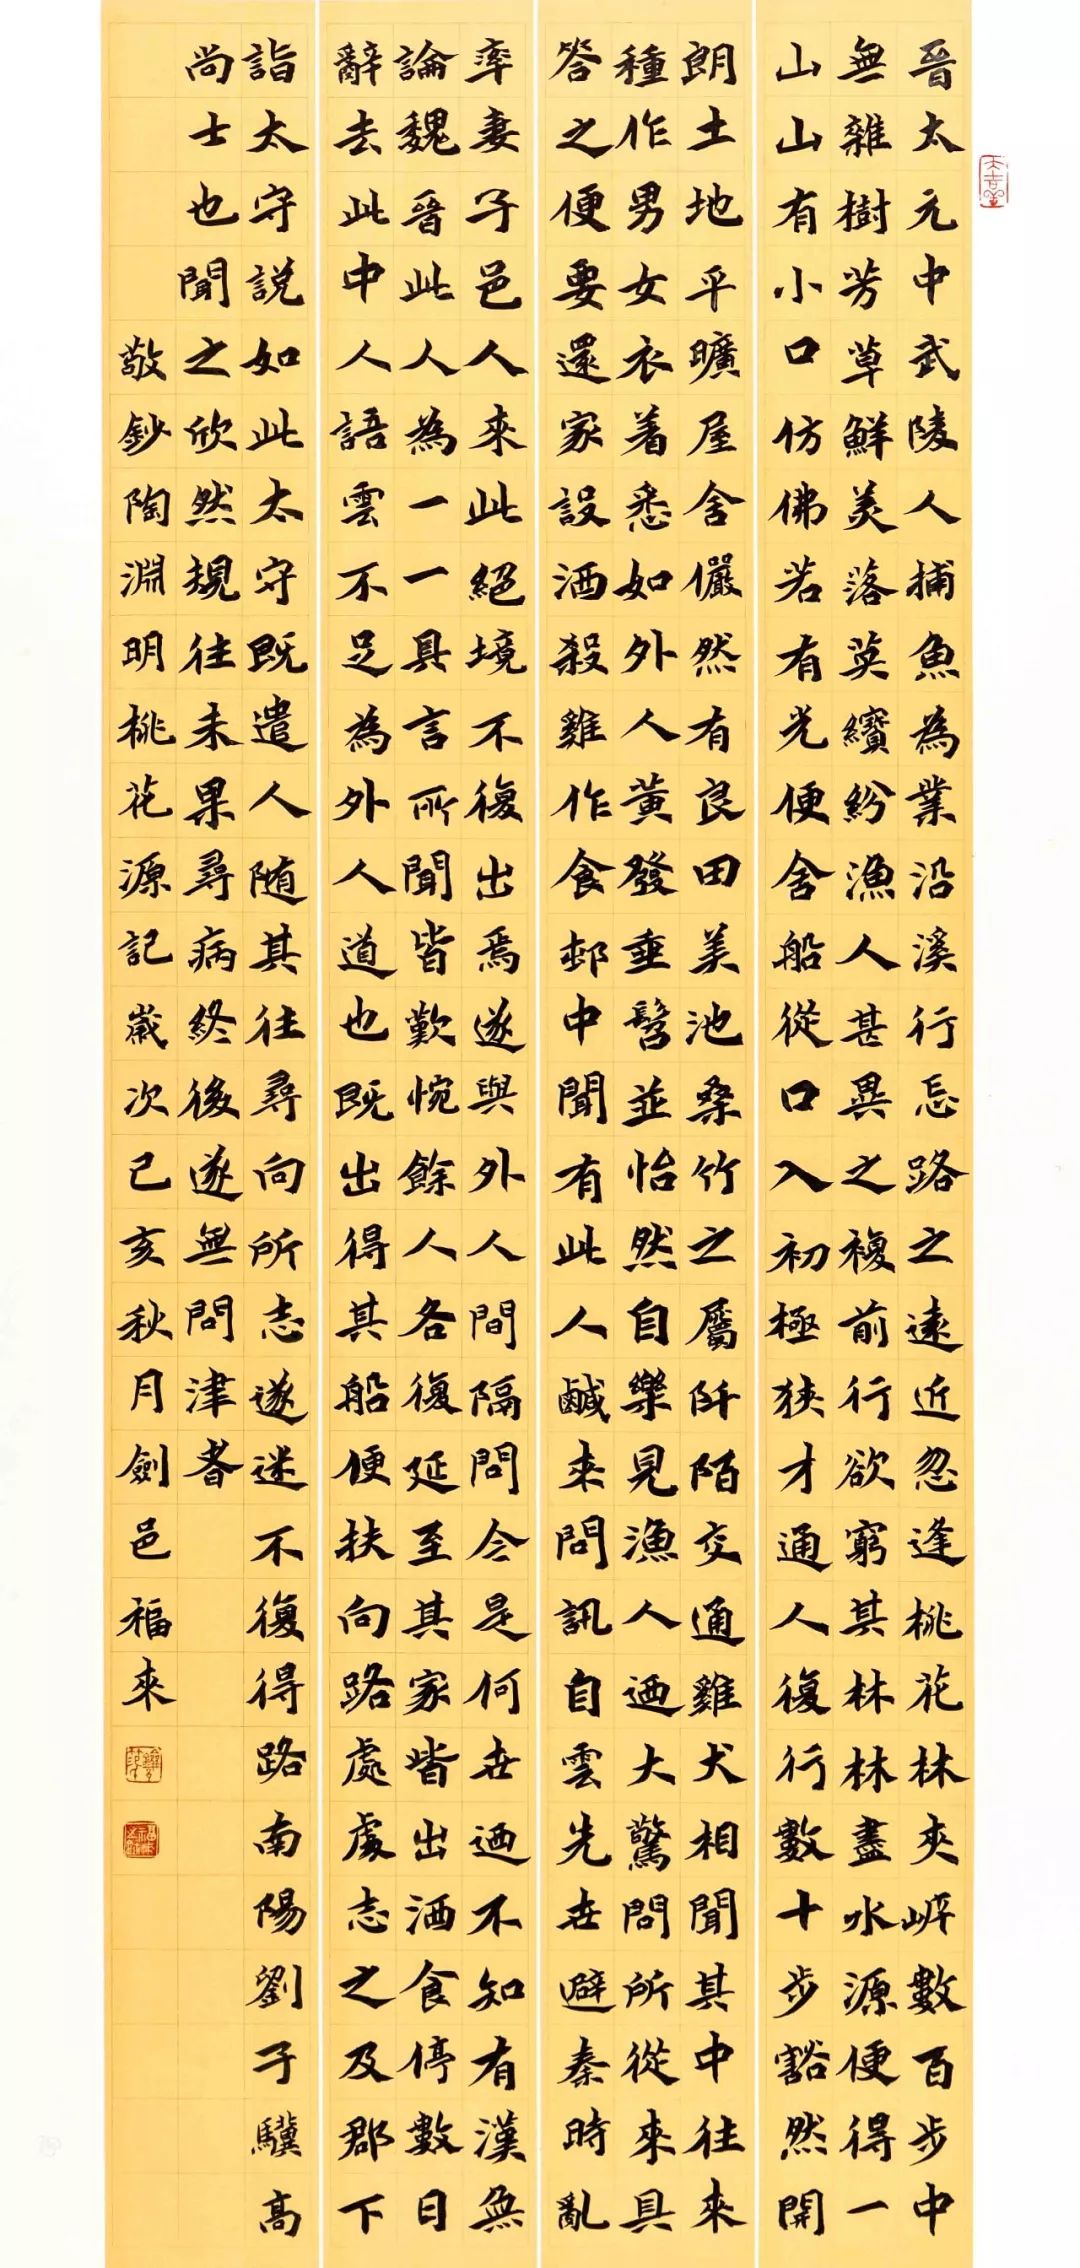 晉太元中武陵人捕魚為業沿溪行忘路之遠近忽逢桃花林夾岸數百步中
無雜樹芳草鮮美落英繽紛漁人甚異之複前行欲窮其林林盡水源便得一
山山有小口仿佛若有光便舍船從口入初極狹才通人復行數十步豁然開
朗土地平曠屋舍儼然有良田美池桑竹之屬阡陌交通雞犬相聞其中往來
種作男女衣着悉如外人黃發垂髫並怡然自樂見漁人迺大驚問所從來具
答之便要還家設酒殺雞作食邨中聞有此人鹹來問訊自雲先世避秦時亂
率妻子邑人來此絕境不復出焉遂與外人間隔問今是何世迺不知有漢無
論魏晉此人為一一具言所聞皆歎惋餘人各復延至其家皆出酒食停數日
辭去此中人語雲不足為外人道也既出得其船便扶向路處處志之及郡下
詣太守說如此太守既遣人隨其往尋向所志遂迷不復得路南陽劉子驥高
尚士也聞之欣然規往未果尋病終後遂無問津者
敬鈔陶淵明桃花源記歲次己亥秋月劍邑福來